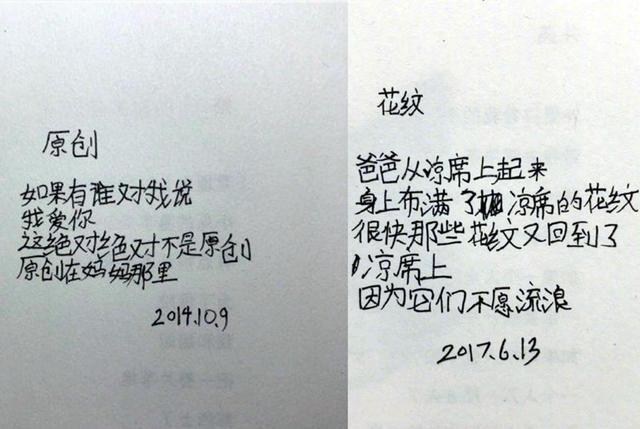 原创
如果有谁对我说
我爱你
这绝对绝对不是原创
原创在妈妈那里
2014.10.9
花纹
爸爸从凉席上起来
身上布满了凉席的花纹
很快那些花纹又回到了
凉席上
因为它们不愿流浪
2017.6.13